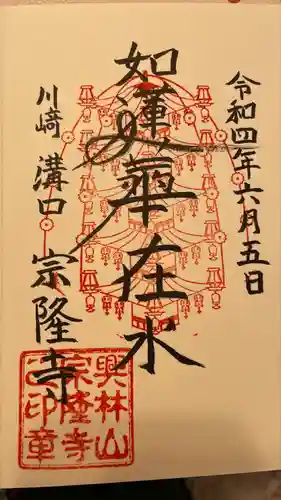 令和四年六月五日
如蓮華在水
川崎 溝口 宗隆寺
興林山
宗隆寺
御印章